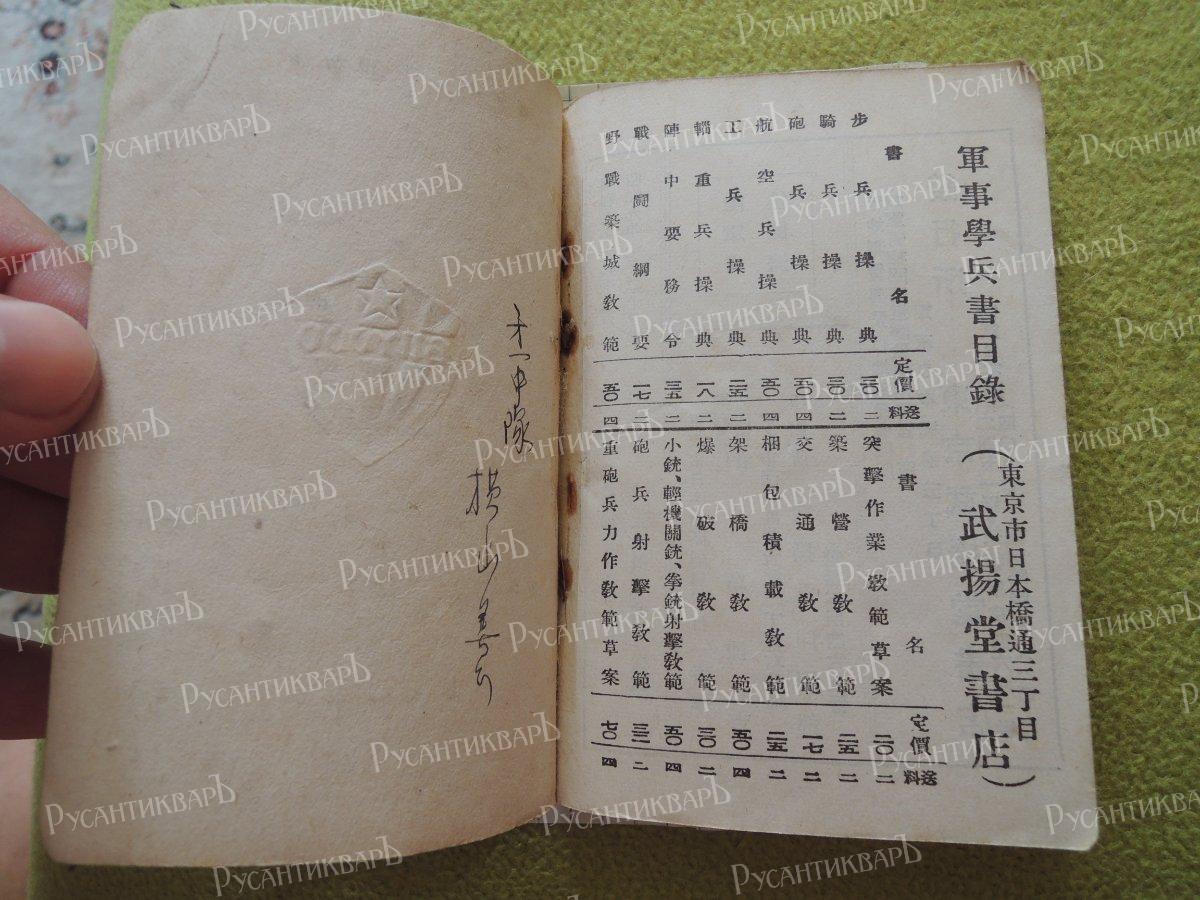 軍事學兵書目錄（東京市日本橋通三丁目 武揚堂書店）
書名 定價 送料
步兵操典 三〇 二
騎兵操典 三〇 二
砲兵操典 五〇 四
航空兵操典 五〇 四
工兵操典 二五 二
輜重兵操典 一八 二
陣中要務令 三五 二
戰鬪綱要 一七 二
野戰築城敎範 五〇 四
書名 定價 送料
突擊作業敎範草案 二〇 二
築營敎範 二五 二
交通敎範 一七 二
梱包積載敎範 二五 二
架橋敎範 五〇 四
爆破敎範 三〇 二
小銃、輕機關銃、拳銃射擊敎範 五〇 四
砲兵射擊敎範 三二 二
重砲兵力作敎範草案 七〇 四
才一中隊
横山
РусАнтикварЪ